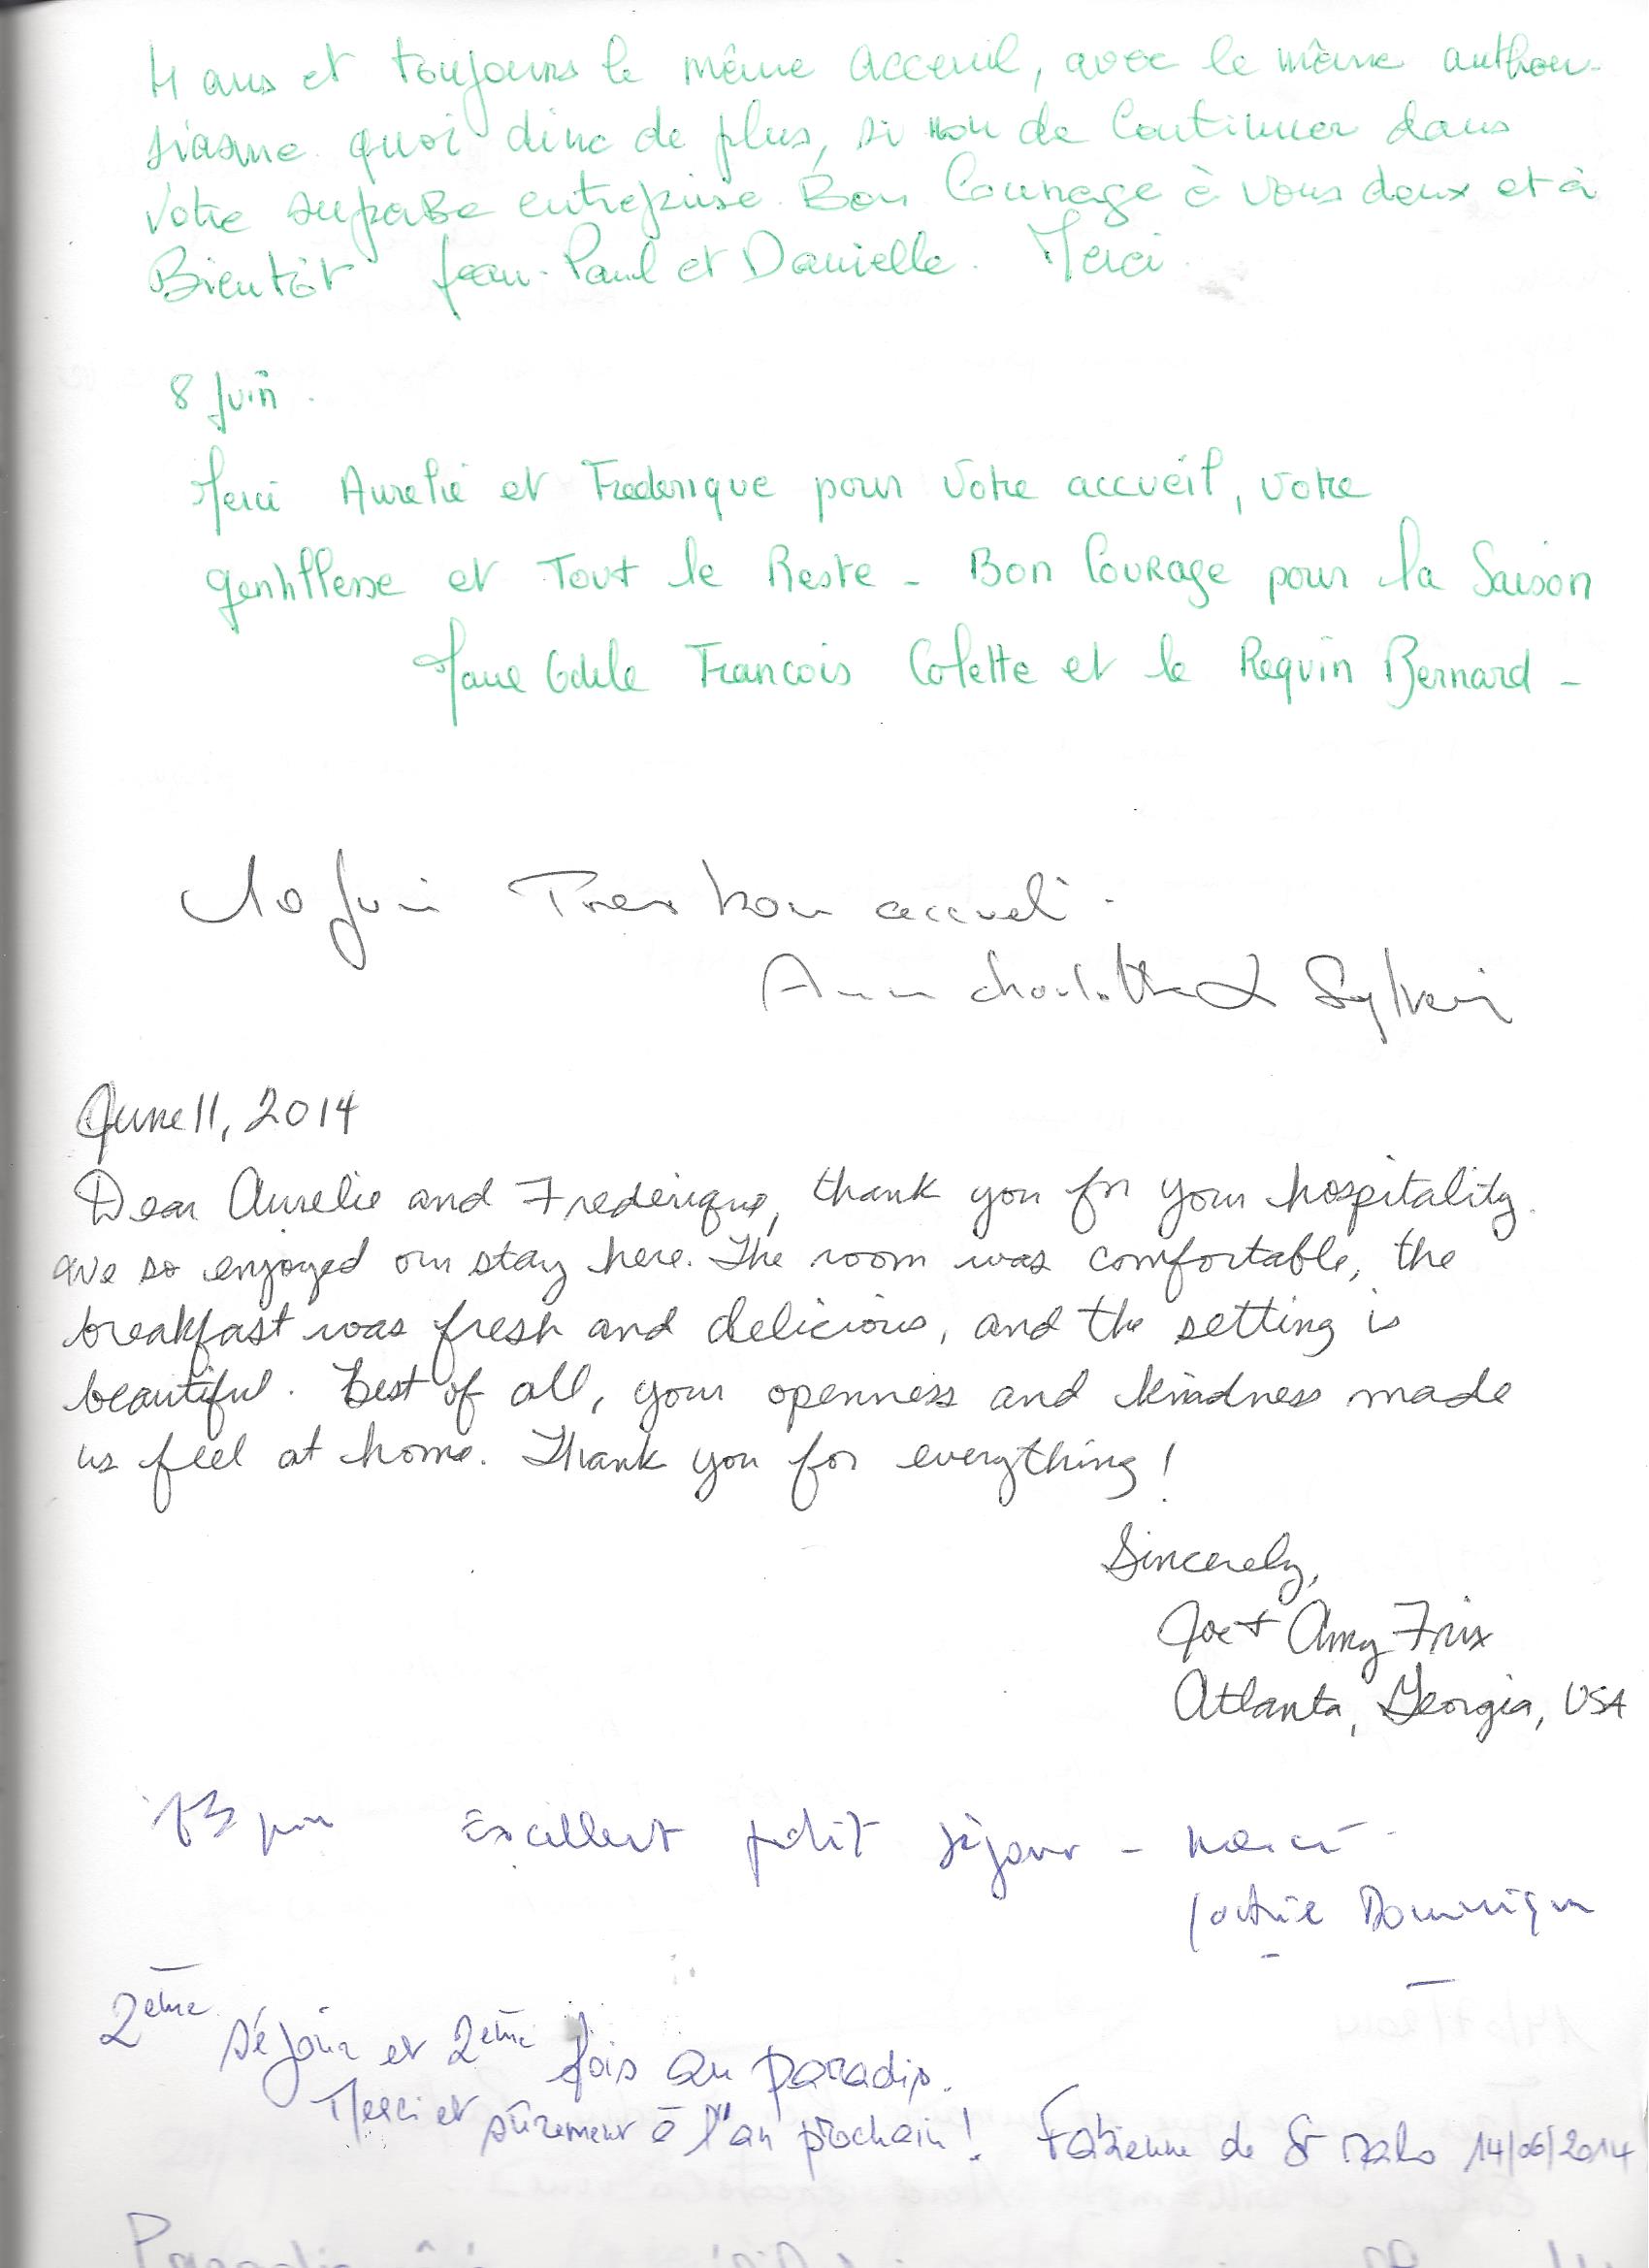 4 ans et toujours le même acceuil, avec le même anthou-
siasme. quoi dire de plus, si non de Continuer dans
Votre superBe entreprise. Bon Courage à Vous deux et à
Bientôt Jean-Paul et Danielle. Merci
8 Juin.
Merci Aurelie et Frederique pour votre accueil, votre
gentillesse et Tout le Reste - Bon Courage pour la Saison
Marie Odile Francois Colette et le Requin Bernard -
10 Juin Tres bon accueil.
Anne Charlotte & Sylvain
June 11, 2014
Dear Aurelie and Frederique, thank you for your hospitality.
We so enjoyed our stay here. The room was comfortable, the
breakfast was fresh and delicious, and the setting is
beautiful. Best of all, your openness and kindness made
us feel at home. Thank you for everything!
Sincerely,
Joe + Amy Frix
Atlanta, Georgia, USA
13 juin Excellent petit séjour - merci -
Dominique
2ème séjour et 2ème fois au paradis.
Merci et sûrement à l'an prochain! Fabienne de St Malo 14/06/2014